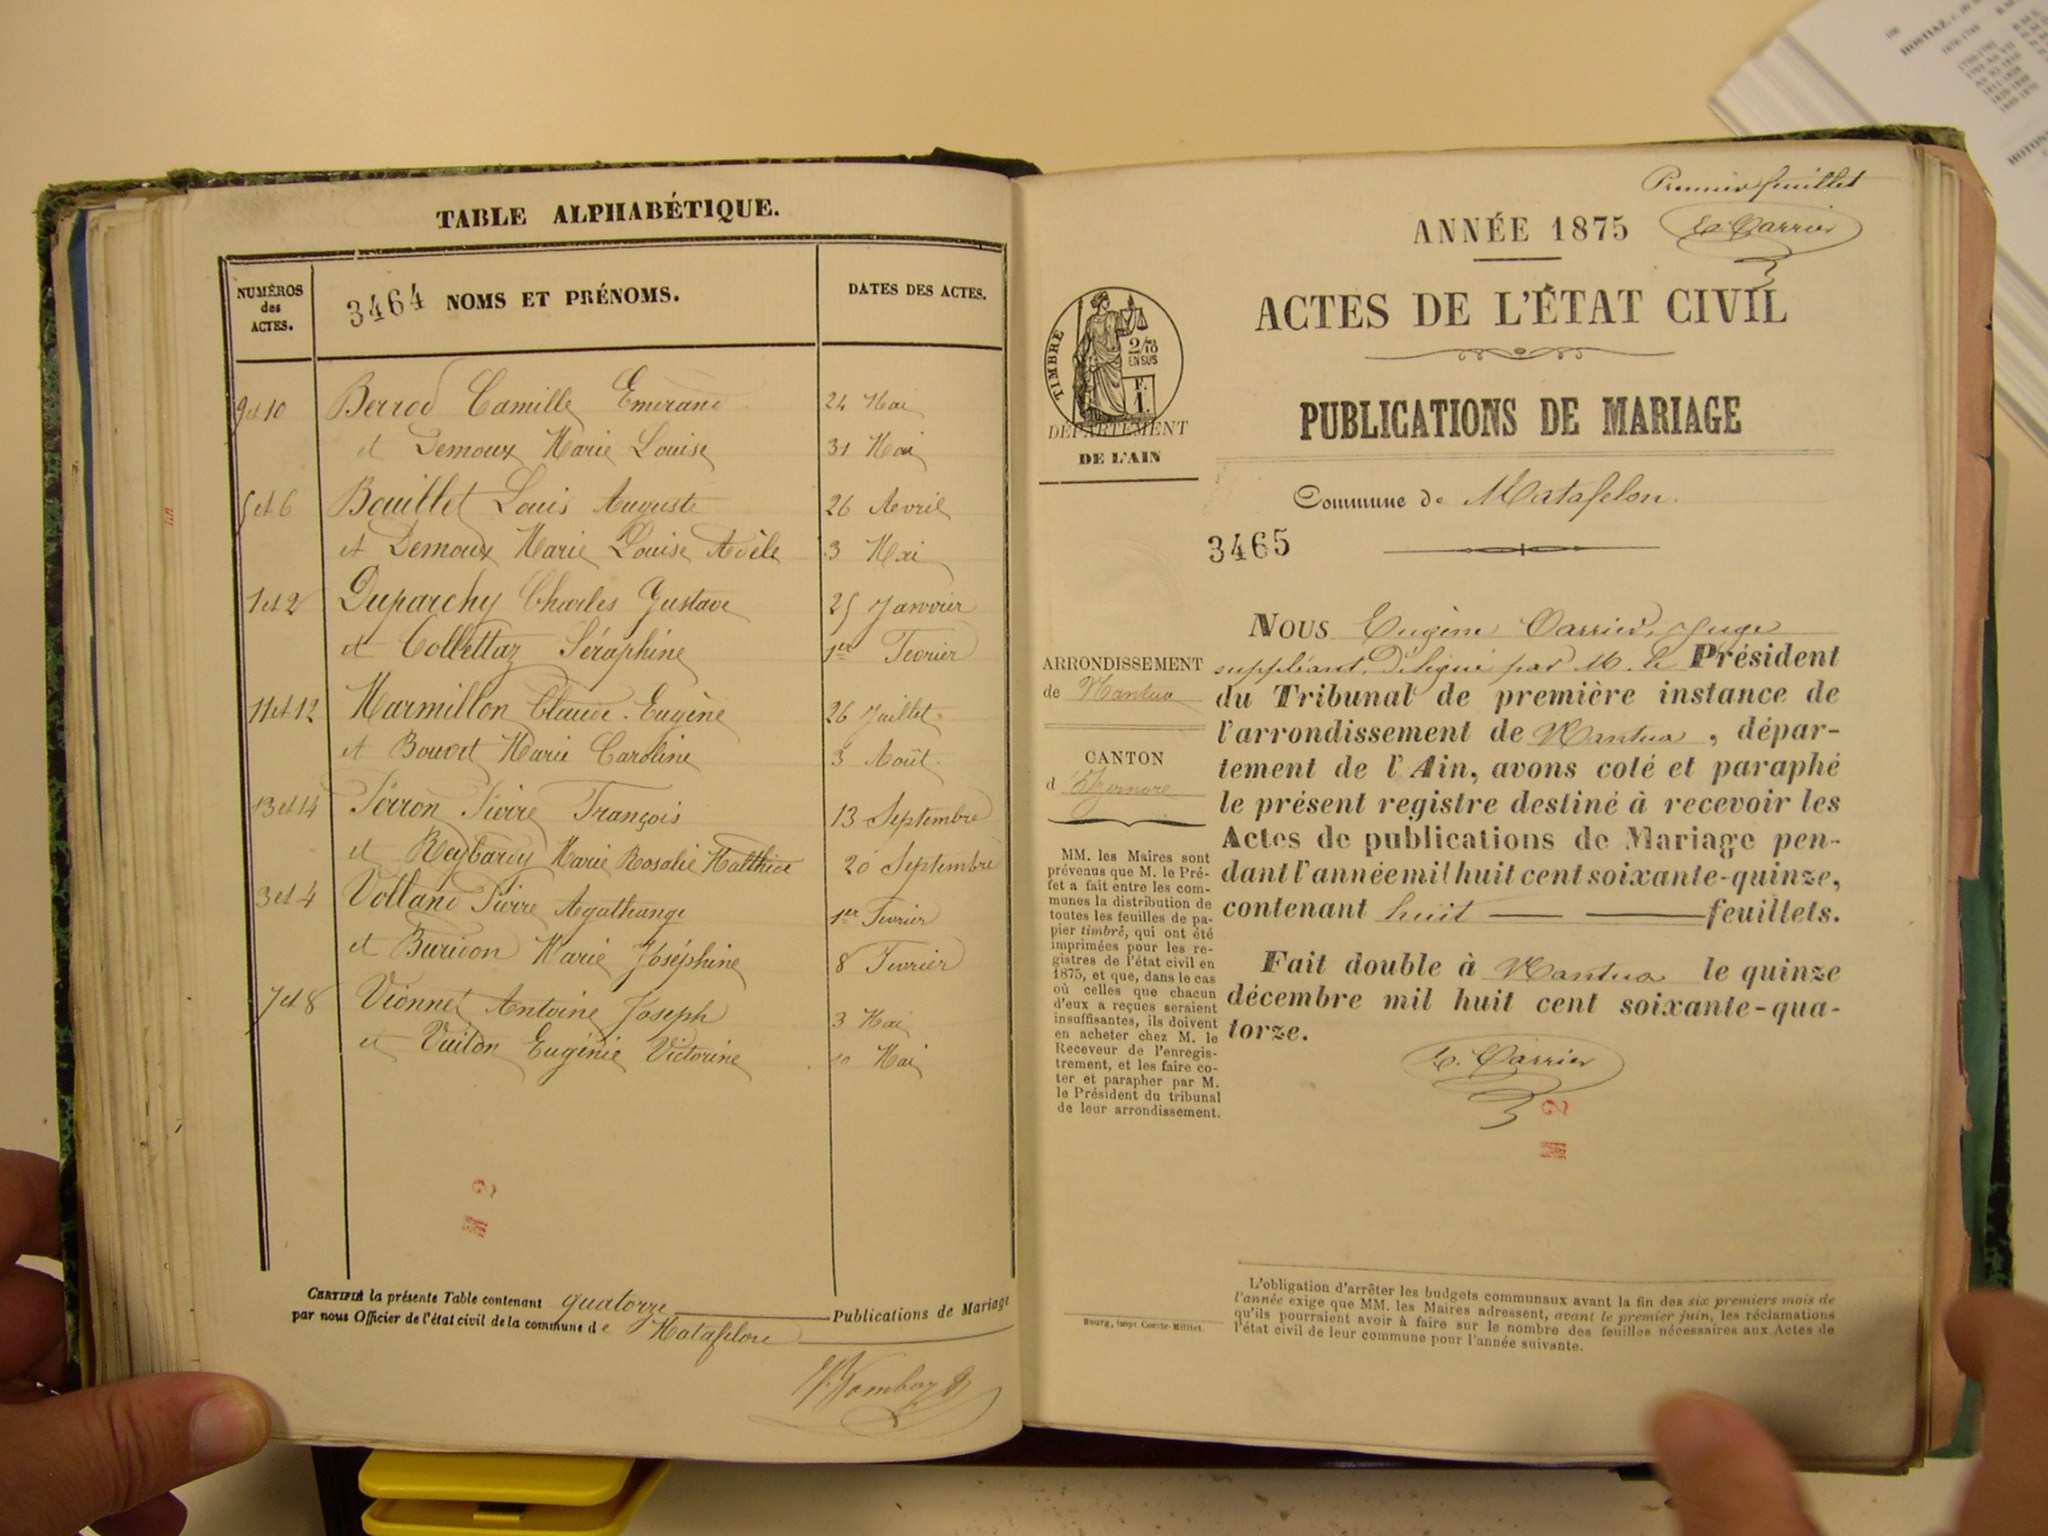 TABLE ALPHABÉTIQUE.
NUMÉROS
des
ACTES.
3464 NOMS ET PRÉNOMS.
DATES DES ACTES.
9 et 10 Berrod Camille Emerand 24 Mai
et Demoux Marie Louise 31 Mai
5 et 6 Bouillet Louis Auguste 26 Avril
et Demoux Marie Louise Adèle 3 Mai
1 et 2 Duparchy Charles Gustave 25 Janvier
et Collettaz Séraphine 1er Fevrier
11 et 12 Marmillon Claude Eugène 26 Juillet
et Bouvet Marie Caroline 3 Août
13 et 14 Pérron Pierre François 13 Septembre
et Marie Rosalie 20 Septembre
3 et 4 Volland Pierre Agathange 1er Fevrier
et Burdon Marie Joséphine 8 Fevrier
7 et 8 Vionnet Antoine Joseph 3 Mai
et Vuiton Eugénie Victorine 10 Mai
CERTIFIÉ la présente Table contenant quatorze Publications de Mariage
par nous Officier de l'état civil de la commune de Matafelon
Premier feuillet
E. Carrier
ANNÉE 1875
ACTES DE L'ÉTAT CIVIL
PUBLICATIONS DE MARIAGE
TIMBRE
2/10
EN SUS
F.
1.
DÉPARTEMENT
DE L'AIN
Commune de Matafelon.
3465
ARRONDISSEMENT
de Nantua
CANTON
d'Izernore
MM. les Maires sont
prévenus que M. le Pré-
fet a fait entre les com-
munes la distribution de
toutes les feuilles de pa-
pier timbré, qui ont été
imprimées pour les re-
gistres de l'état civil en
1875, et que, dans le cas
où celles que chacun
d'eux a reçues seraient
insuffisantes, ils doivent
en acheter chez M. le
Receveur de l'enregis-
trement, et les faire co-
ter et parapher par M.
le Président du tribunal
de leur arrondissement.
NOUS Eugène Carrier, Juge
suppléant, délégué par M. le Président
du Tribunal de première instance de
l'arrondissement de Nantua, dépar-
tement de l'Ain, avons coté et paraphé
le présent registre destiné à recevoir les
Actes de publications de Mariage pen-
dant l'année mil huit cent soixante-quinze,
contenant huit feuillets.
Fait double à Nantua le quinze
décembre mil huit cent soixante-qua-
torze.
E. Carrier
Bourg, impr. Comte-Milliet.
L'obligation d'arrêter les budgets communaux avant la fin des six premiers mois de
l'année exige que MM. les Maires adressent, avant le premier juin, les réclamations
qu'ils pourraient avoir à faire sur le nombre des feuilles nécessaires aux Actes de
l'état civil de leur commune pour l'année suivante.